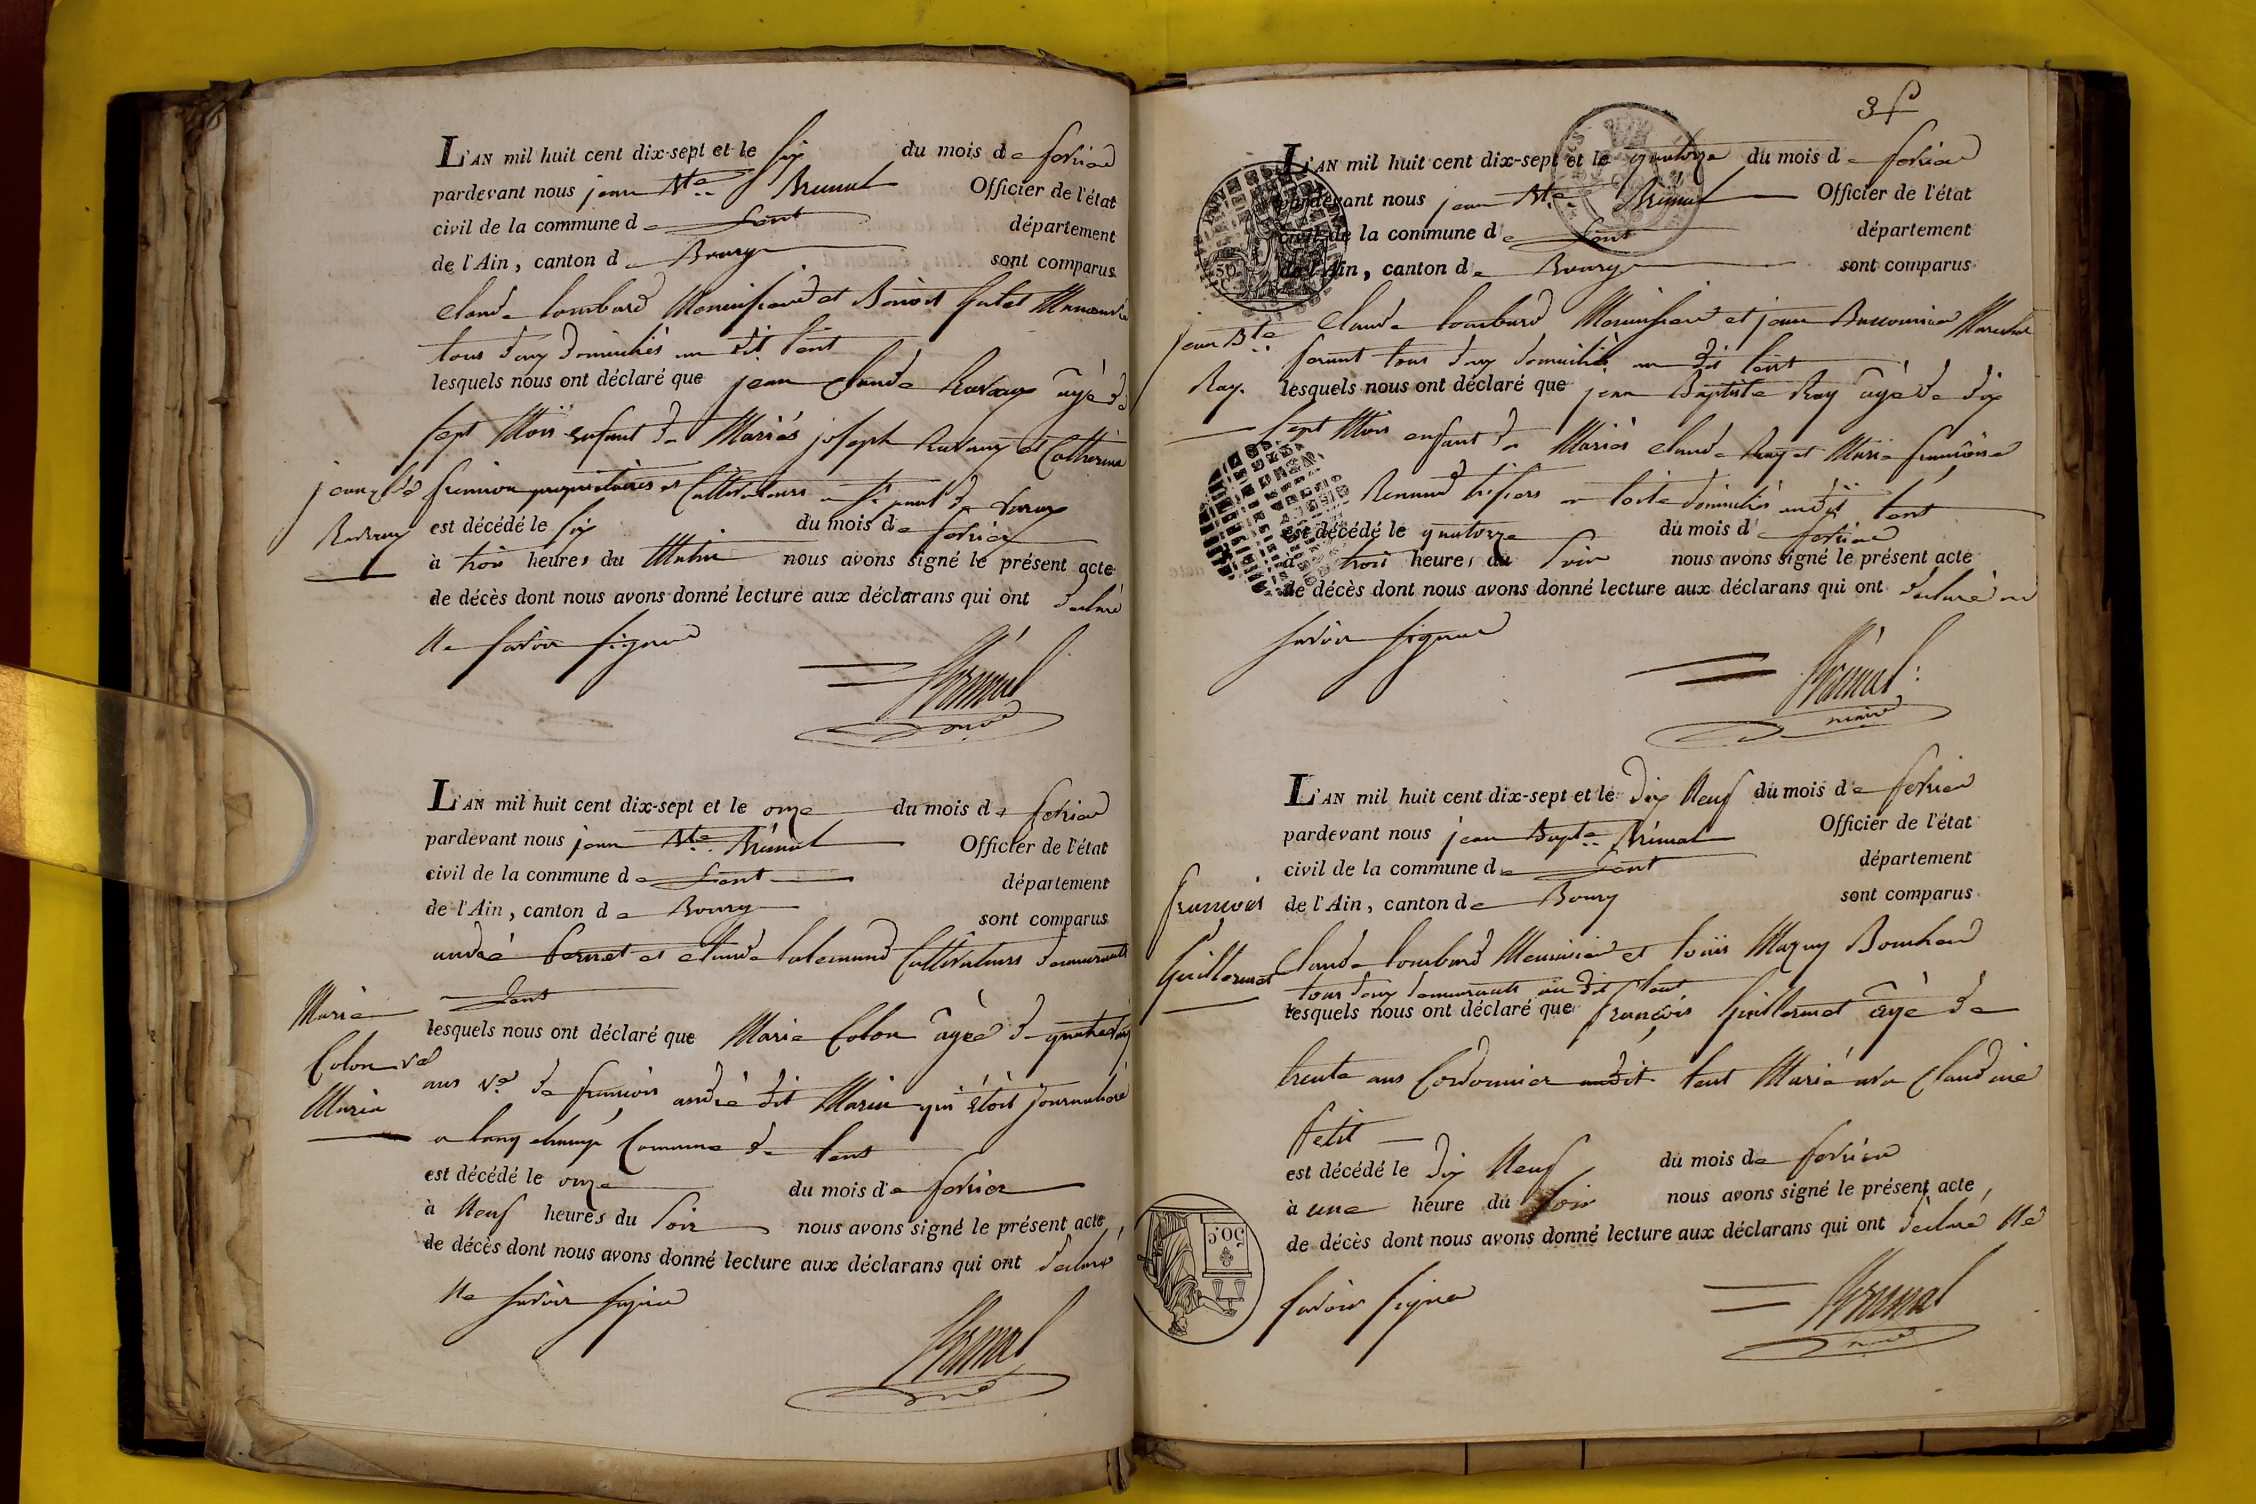 L'AN mil huit cent dix-sept et le six du mois de fevrier
pardevant nous jean Bte Brunal Officier de l'état
civil de la commune de Lent département
de l'Ain, canton de Bourg sont comparus
Claude Lombard Menuisier et Benoit
tous deux domiciliés au dit Lent
lesquels nous ont déclaré que jean Claude agé de
sept Mois enfant de Mariés joseph et Catherine
jean Cde propriétaires et Cultivateurs a St paul de Varax
est décédé le six du mois de fevrier
à trois heures du Matin nous avons signé le présent acte
de décès dont nous avons donné lecture aux déclarans qui ont declaré
Ne savoir signer
L'AN mil huit cent dix-sept et le onze du mois de fevrier
pardevant nous jean Bte Brunal Officier de l'état
civil de la commune de Lent département
de l'Ain, canton de Bourg sont comparus
andré et Claude Cultivateurs demeurants
a Lent
Marie
Colon ve
Marin
lesquels nous ont déclaré que Marie Colon agée de
ans ve de françois andré dit Marin qui étoit journalier
a Longchamp Commune de Lent
est décédé le onze du mois de fevrier
à Neuf heures du Soir nous avons signé le présent acte
de décès dont nous avons donné lecture aux déclarans qui ont declaré
Ne savoir signer
L'AN mil huit cent dix-sept et le quatorze du mois de fevrier
pardevant nous jean Bte Brunal Officier de l'état
civil de la commune de Lent département
de l'Ain, canton de Bourg sont comparus
jean Bte
Ray
Claude Lombard Menuisier et jean Marechal
ferant tous deux domiciliés au dit Lent
lesquels nous ont déclaré que jean Baptiste Ray agé de dix
sept Mois enfant de Mariés Claude Ray et Marie françoise
Renaud domiciliés audit Lent
est décédé le quatorze du mois de fevrier
à trois heures du Soir nous avons signé le présent acte
de décès dont nous avons donné lecture aux déclarans qui ont declaré ne
savoir signer
Brunal
maire
L'AN mil huit cent dix-sept et le dix Neuf du mois de fevrier
pardevant nous jean Bapte Brunal Officier de l'état
civil de la commune de Lent département
de l'Ain, canton de Bourg sont comparus
françois
Guillermet
Claude Lombard Menuisier et Louis Boucher
tous deux demeurants au dit Lent
lesquels nous ont déclaré que françois Guillermet agé de
trente ans Cordonnier audit Lent Marié avec Claudine
Petit
est décédé le dix Neuf du mois de fevrier
à une heure du Soir nous avons signé le présent acte
de décès dont nous avons donné lecture aux déclarans qui ont declaré Ne
savoir signer
Brunal
50 c